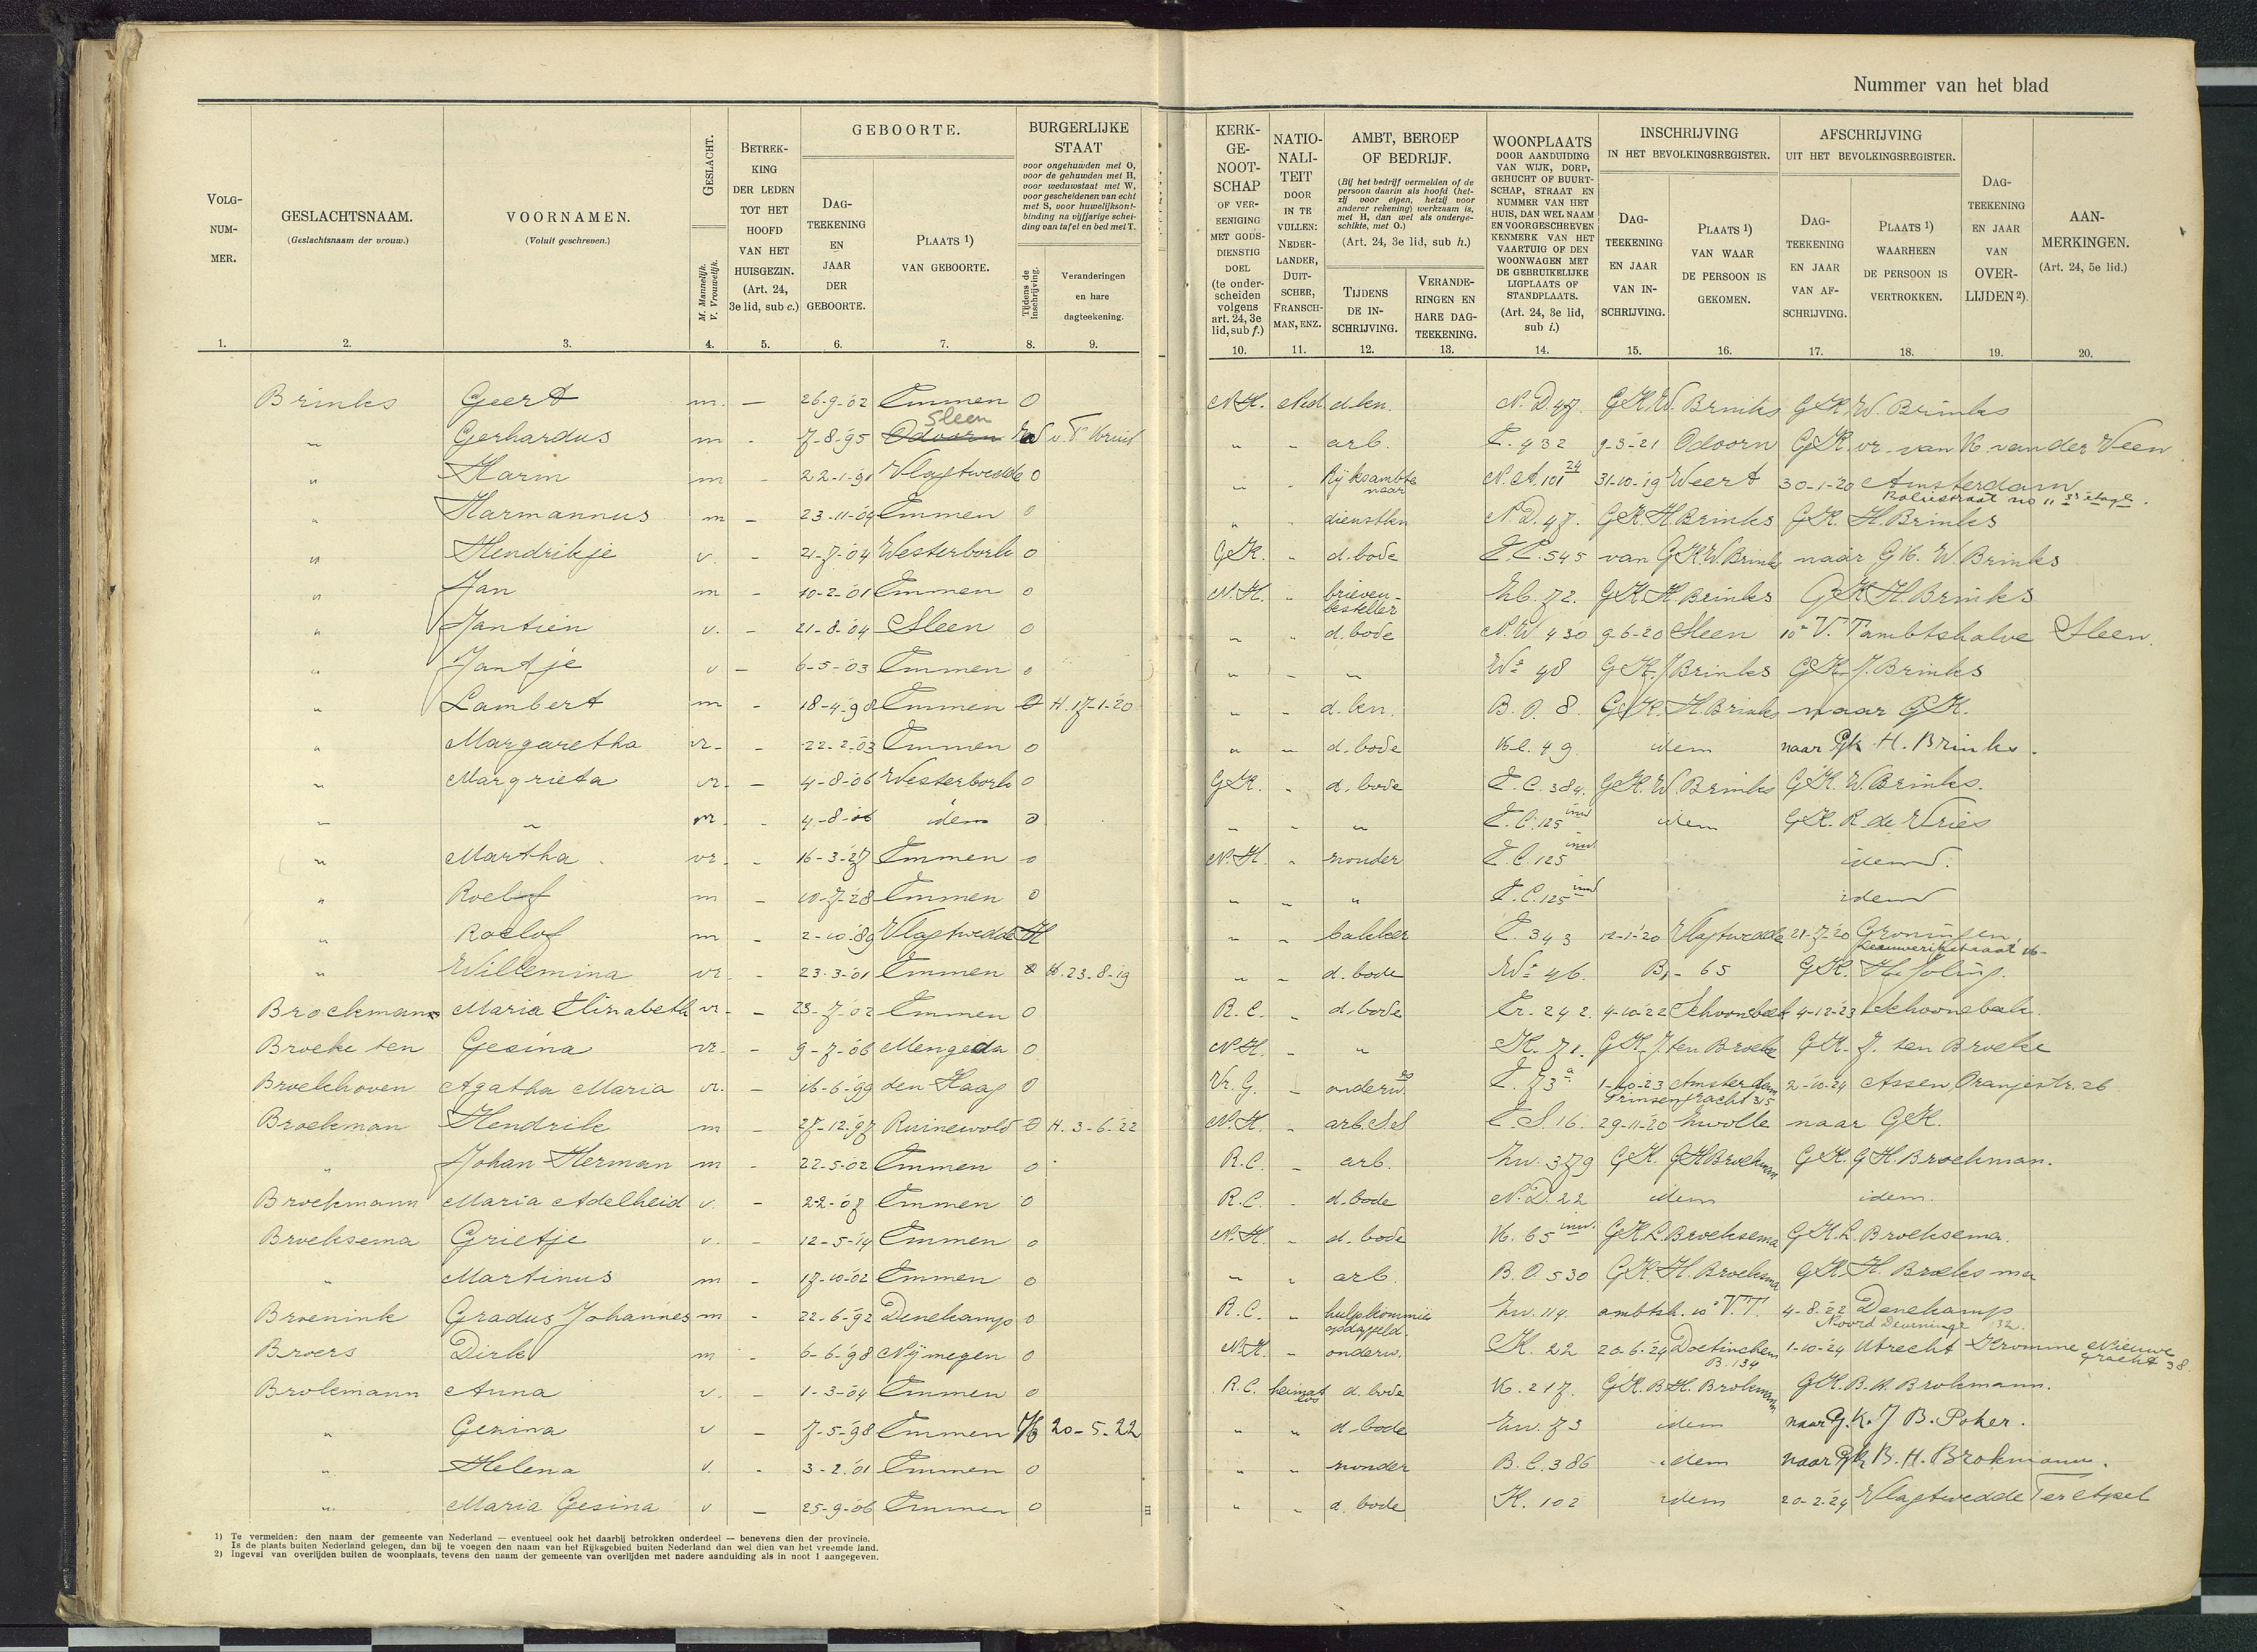 Nummer van het blad
VOLG-NUM-MER. GESLACHTSNAAM. (Geslachtsnaam der vrouw.) VOORNAMEN. (Voluit geschreven.) GESLACHT. M. Mannelijk. V. Vrouwelijk. BETREK-KING DER LEDEN TOT HET HOOFD VAN HET HUISGEZIN. (Art. 24, 3e lid, sub c.) GEBOORTE. DAG-TEEKENING EN JAAR DER GEBOORTE. PLAATS 1) VAN GEBOORTE. BURGERLIJKE STAAT voor ongehuwden met O, voor de gehuwden met H, voor weduwstaat met W, voor gescheidenen van echt met S, voor huwelijksont-binding na vijfjarige schei-ding van tafel en bed met T. Tijdens de inschrijving. Veranderingen en hare dagteekening.
KERK-GE-NOOT-SCHAP OF VER-EENIGING MET GODS-DIENSTIG DOEL (te onder-scheiden volgens art. 24, 3e lid, sub f.) NATIO-NALI-TEIT DOOR IN TE VULLEN: NEDER-LANDER, DUIT-SCHER, FRANSCH-MAN, ENZ. AMBT, BEROEP OF BEDRIJF. (Bij het bedrijf vermelden of de persoon daarin als hoofd (het-zij voor eigen, hetzij voor anderer rekening) werkzaam is, met H, dan wel als onderge-schikte, met O.) (Art. 24, 3e lid, sub h.) TIJDENS DE IN-SCHRIJVING. VERANDE-RINGEN EN HARE DAG-TEEKENING. WOONPLAATS DOOR AANDUIDING VAN WIJK, DORP, GEHUCHT OF BUURT-SCHAP, STRAAT EN NUMMER VAN HET HUIS, DAN WEL NAAM EN VOORGESCHREVEN KENMERK VAN HET VAARTUIG OF DEN WOONWAGEN MET DE GEBRUIKELIJKE LIGPLAATS OF STANDPLAATS. (Art. 24, 3e lid, sub i.) INSCHRIJVING IN HET BEVOLKINGSREGISTER. DAG-TEEKENING EN JAAR VAN IN-SCHRIJVING. PLAATS 1) VAN WAAR DE PERSOON IS GEKOMEN. AFSCHRIJVING UIT HET BEVOLKINGSREGISTER. DAG-TEEKENING EN JAAR VAN AF-SCHRIJVING. PLAATS 1) WAARHEEN DE PERSOON IS VERTROKKEN. DAG-TEEKENING EN JAAR VAN OVER-LIJDEN 2). AAN-MERKINGEN. (Art. 24, 5e lid.)
1. 2. 3. 4. 5. 6. 7. 8. 9. 10. 11. 12. 13. 14. 15. 16. 17. 18. 19. 20.
Brinks Geert m. — 26-9-'02 Emmen O N.H. Ned d.kn. N.D. 47. G.K. W. Brinks G.K. W. Brinks
" Gerhardus m - 7-8-'95 Odoorn Sleen " - arb. E. 432 9-3-21 Odoorn G.K. vr. van K. van der Veen
" Harm m - 22-1-'91 Vlagtwedde O " - Rijksambtenaar N.A. 101 24 31-10-19 Weert 30-1-20 Amsterdam
" Harmannus m - 23-11-'04 Emmen O " - dienstkn N.D. 47. G.K. H. Brinks G.K. H. Brinks
" Hendrikje v. - 21-7-'04 Westerbork O G.K. - d.bode E.C. 545 van G.K. W. Brinks naar G.K. W. Brinks
" Jan m - 10-2-'01 Emmen O N.H. - brieven-besteller 72. G.K. H. Brinks G.K. H. Brinks
" Jantien v. - 21-8-'04 Sleen O " " d.bode N.W 430 9-6-20 Sleen 10e V.T ambtshalve Sleen.
" Jantje v - 6-5-'03 Emmen O " - " 48 G.K. J. Brinks G.K. J. Brinks
" Lambert m - 18-4-'98 Emmen O H. 17-1-20 " - d.kn. B.O. 8. G.K. H. Brinks naar G.K.
" Margaretha vr. - 22-2-'03 Emmen O " - d.bode K.l. 49 idem naar Gk H. Brinks.
" Margrieta vr. — 4-8-'06 Westerbork O G.K. - d.bode E.C. 384. G.K. W. Brinks G.K. W. Brinks.
" " vr. - 4-8-'06 idem O " " " E.C. 125 inw idem G.K. R. de Vries
" Martha vr. - 16-3-'27 Emmen O N.H. - zonder E.C. 125 inw. idem.
" Roelof m - 10-7-28 Emmen O " - " E.C. 125 inw idem
" Roelof m - 2-10-'89 Vlagtwedde H " - bakker E. 343 12-1-'20 Vlagtwedde 21-7-'20 Groningen, Leeuwerikstraat 16-
" Willemina vr - 23-3-'01 Emmen O H. 23-8-19 " - d.bode 46. B, - 65 G.K. Joling.
Brockmann Maria Elisabeth vr. - 23-7-'02 Emmen O R.C. - d.bode Er. 242. 4-10-22 Schoonebeek 4-12-'23 Schoonebeek.
Broeke ten Gesina vr. - 9-7-'06 Mengede O N.H. - " K. 71. G.K. J. ten Broeke G.K. J. ten Broeke
Broekhoven Agatha Maria vr. - 16-6-'99 den Haag O Vr. G. - onderw. E. 73a 1-10-23 Amsterdam Prinsengracht 315 2-10-24 Assen, Oranjestr. 26
Broekman Hendrik m - 27-12-'97 Ruinewold O H. 3-6-22 N.H. - arb. S.S E.S. 16. 29-11-20 Zwolle naar G.K.
" Johan Herman m - 22-5-'02 Emmen O R.C. - arb. Zw. 379 G.K. G.H. Broekman G.K. G.H. Broekman.
Broekmann Maria Adelheid v. - 2-2-'07 Emmen O R.C. - d.bode N.D. 22 idem idem.
Broeksema Grietje v. - 12-5-'14 Emmen O N.H. - d.bode K. 65 inw. G.K. L. Broeksema G.K. L. Broeksema.
" Martinus m - 17-10-02 Emmen O " " arb. B.O. 530 G.K. H. Broeksma G.K. H. Broeksma
Broenink Gradus Johannes m - 22-6-'92 Denekamp O R.C. - hulpkommies Zw. 114. ambtsh. 10e V.T. 4-8-22 Denekamp Noord Deurninge 32.
Broers Dirk m - 6-6-'98 Nijmegen O N.H. - onderw. K. 22 20-6-24 Doetinchem B. 134 1-10-24 Utrecht Kromme Nieuwe gracht 38
Brokmann Anna v. - 1-3-'04 Emmen O R.C. heimat los d.bode K. 217. G.K. B.H. Brokmann G.K. B.H. Brokmann.
" Gesina v - 7-5-'98 Emmen 20-5-22 " " d.bode Zw. 73 idem naar G.K. J B. Poker.
" Helena v. - 3-2-'01 Emmen O " - zonder B.C. 386 idem naar Gk B. H. Brokmann.
" Maria Gesina v — 25-9-'06 Emmen O " - d.bode K. 102 idem 20-2-'24 Vlagtwedde Ter Apel
1) Te vermelden: den naam der gemeente van Nederland — eventueel ook het daarbij betrokken onderdeel — benevens dien der provincie.
Is de plaats buiten Nederland gelegen, dan bij te voegen den naam van het Rijksgebied buiten Nederland dan wel dien van het vreemde land.
2) Ingeval van overlijden buiten de woonplaats, tevens den naam der gemeente van overlijden met nadere aanduiding als in noot 1 aangegeven.